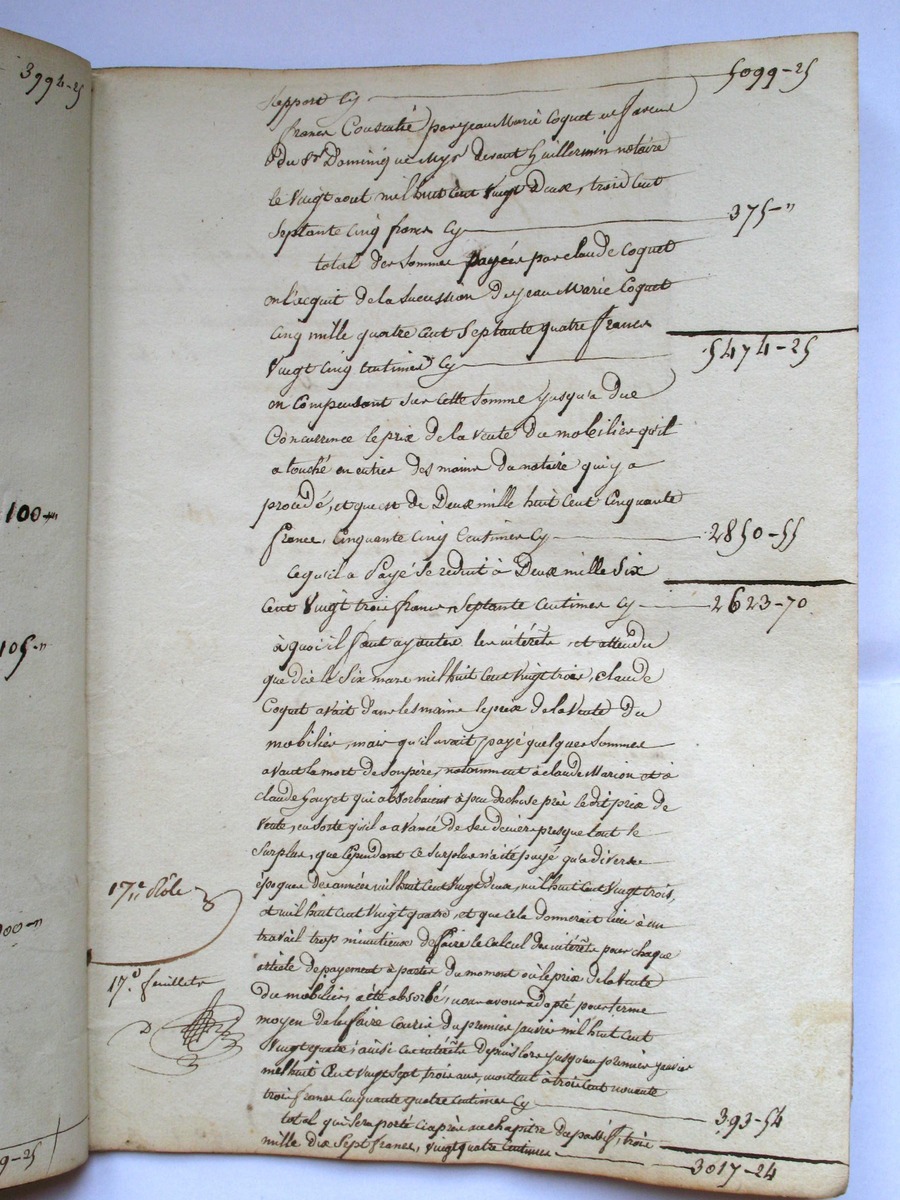 3994-25
100-"
105-"
00-"
9-25
Report Cy 5099-25
francs Consentie par Jean Marie Coquet en faveur
du Sr. Dominique devant Guillermin notaire
le Vingt aout mil huit Cent Vingt Deux, trois Cent
Septante Cinq francs Cy 375-"
total des sommes payées par claude Coquet
en l'acquit de la Sucession de jean Marie Coquet
Cinq mille quatre Cent Septante quatre francs
Vingt Cinq Centimes Cy 5474-25
en Compensant sur Cette Somme jusqu'a Due
Concurrence le prix de la Vente Du mobilier qu'il
a touché en entier des mains du notaire qui y a
procédé, et qui est de Deux mille huit Cent Cinquante
francs, Cinquante Cinq Centimes Cy 2850-55
Ce qu'il a Payé Se reduit à Deux mille Six
Cent Vingt trois francs Septante Centimes Cy 2623-70
à quoi il faut ajouter les intérêts, et attendu
que dès le Six mars mil huit Cent Vingt trois, Claude
Coquet avait Dans les mains le prix de la Vente Du
mobilier, mais qu'il avait payé quelques Sommes
avant la mort de Son père, notamment à claude Marion et à
Claude Gouget qui absorbaient à peu de chose près le dit prix de
Vente, en sorte qu'il a avancé de Ses deniers presque tout le
Surplus, que Cependant Ce Surplus n'a été payé qu'a diverses
époques des années mil huit Cent Vingt Deux, mil huit Cent Vingt trois,
et mil huit Cent Vingt quatre, et que Cela donnerait lieu à un
travail trop minutieux de faire le Calcul des intérêts pour chaque
article de payement à partir du moment où le prix de la Vente
Du mobilier a été absorbé, nous avons adopté pour terme
moyen de les faire Courir Du premier janvier mil huit Cent
Vingt quatre; ainsi Ces intérêts depuis lors jusqu'au premier janvier
mil huit Cent Vingt Sept trois ans, montent à trois Cent nonante
trois francs Cinquante quatre Centimes Cy 393-54
total qui Sera porté Ciaprès au chapitre Du passif, trois
mille dix Sept francs, Vingt quatre Centimes 3017-24
17e. Rôle
17e. feuillets